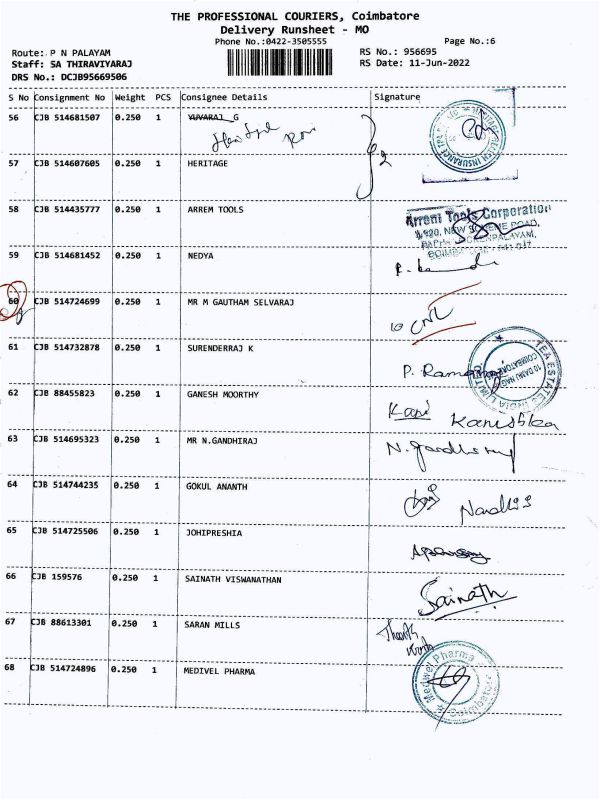 THE PROFESSIONAL COURIERS, Coimbatore
Delivery Runsheet - MO
Phone No.:0422-3505555
Page No.:6
Route: P N PALAYAM
RS No.: 956695
Staff: SA THIRAVIYARAJ
RS Date: 11-Jun-2022
DRS No.: DCJB95669506
S No Consignment No Weight PCS Consignee Details Signature
56 CJB 514681507 0.250 1 YUVARAJ G
57 CJB 514607605 0.250 1 HERITAGE 2
58 CJB 514435777 0.250 1 ARREM TOOLS
Arrem Tools Corporation
NEW SCHEME ROAD,
59 CJB 514681452 0.250 1 NEDYA
60 CJB 514724699 0.250 1 MR M GAUTHAM SELVARAJ
61 CJB 514732878 0.250 1 SURENDERRAJ K
TEA ESTATES INDIA LIMITED
COIMBATORE
62 CJB 88455823 0.250 1 GANESH MOORTHY Kani Kanishka
63 CJB 514695323 0.250 1 MR N.GANDHIRAJ
64 CJB 514744235 0.250 1 GOKUL ANANTH
65 CJB 514725506 0.250 1 JOHIPRESHIA
66 CJB 159576 0.250 1 SAINATH VISWANATHAN Sainath
67 CJB 88613301 0.250 1 SARAN MILLS
68 CJB 514724896 0.250 1 MEDIVEL PHARMA
Medivel Pharma
Coimbatore